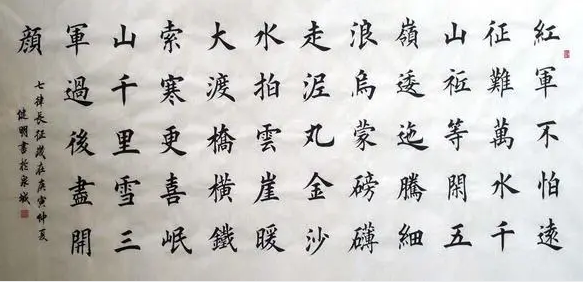 紅軍不怕遠
征難萬水千
山衹等閑五
嶺逶迤騰細
浪烏蒙磅礴
走泥丸金沙
水拍雲崖暖
大渡橋橫鐵
索寒更喜岷
山千里雪三
軍過後盡開
顔
七律長征歲在庚寅仲夏
健明書於泉城